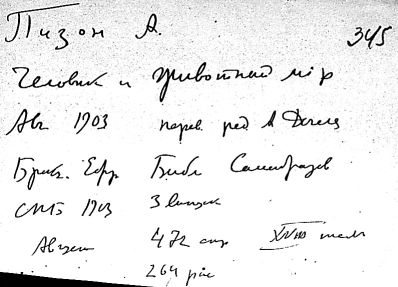 Пизон А. 345
Человек и животный мір
Авг 1903 перев ред А
Брокг. Ефр Библ Самообразов
СПБ 1903 3 выпуск
Август 472 стр XVIII
264 рис